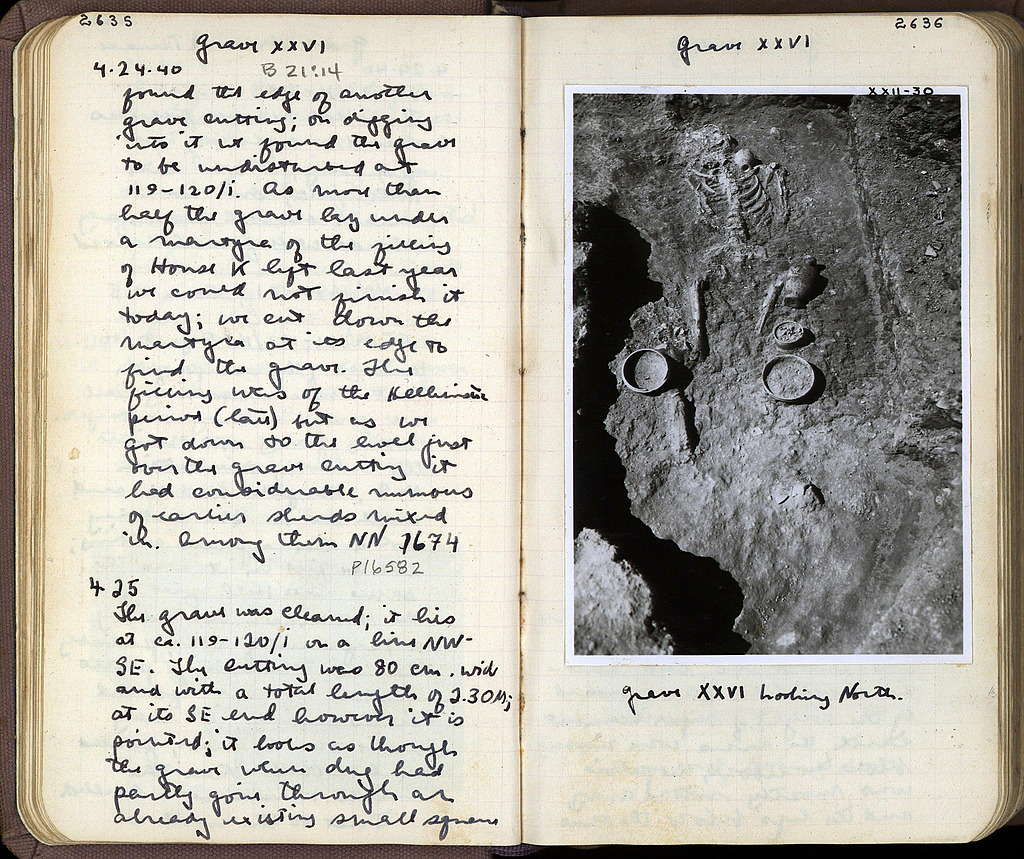 2635
Grave XXVI
4.24.40
B 21:14
found the edge of another
grave cutting; on digging
into it we found the grave
to be undisturbed at
119-120/i. As more than
half the grave lay under
a martyra of the filling
of House K left last year
we could not finish it
today; we cut down the
martyra at its edge to
find the grave. The
filling was of the Hellenistic
period (late) but as we
got down to the level just
over the grave cutting it
had considerable numbers
of earlier sherds mixed
in. Among them NN 1674
P16582
4 25
The grave was cleaned; it lies
at ca. 119-120/i on a line NW-
SE. The cutting was 80 cm. wide
and with a total length of 2.30 M;
at its SE end however it is
pointed; it looks as though
the grave when dug had
partly gone through an
already existing small square
2636
Grave XXVI
XXII-30
Grave XXVI looking North.